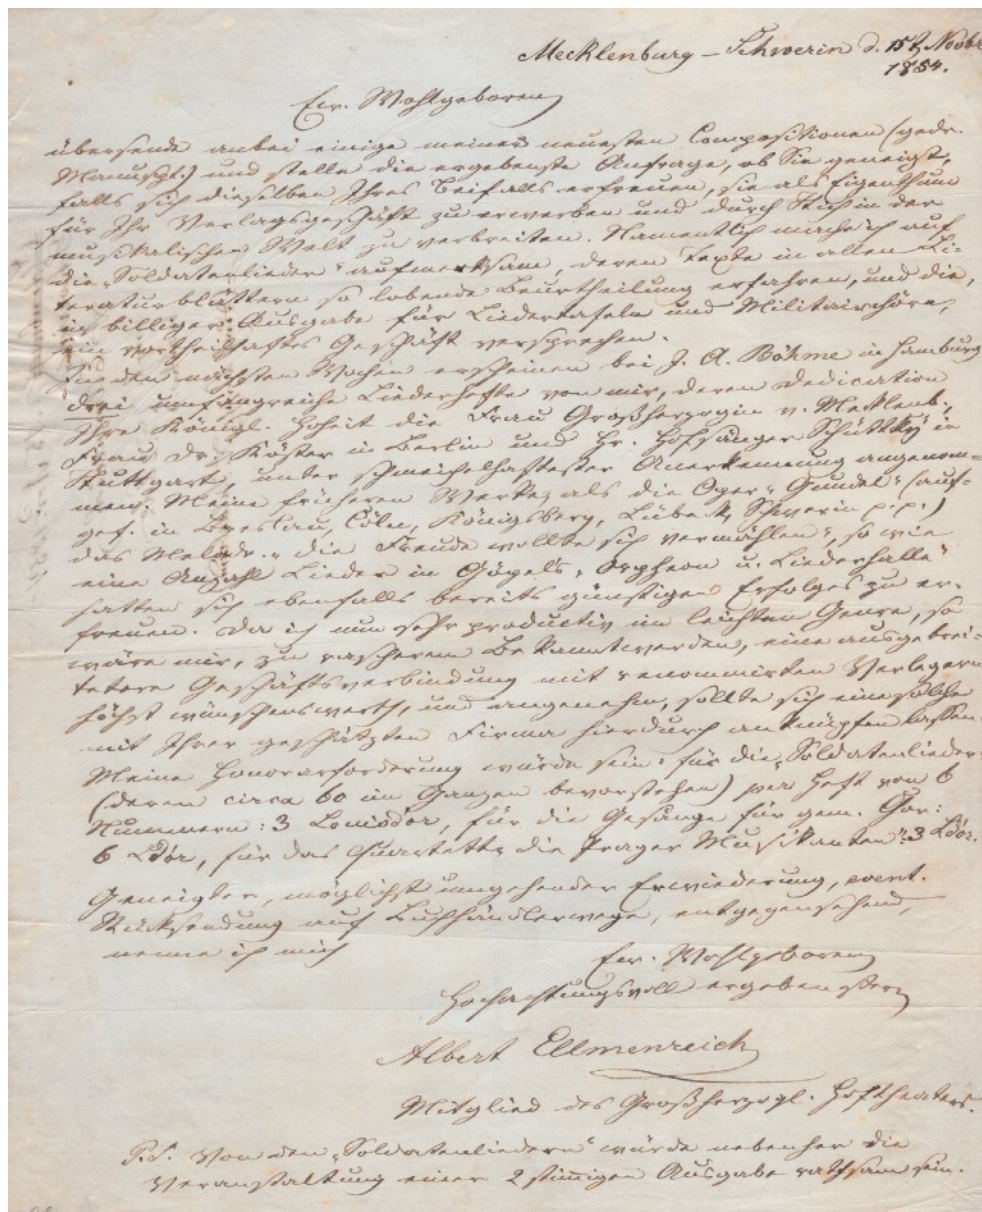 Mecklenburg – Schwerin d. 15t Novbr
1854.
Ew. Wohlgeboren
übersende anbei einige meiner neusten Compositionen (gedr.
Manuskpt.) und stelle die ergebenste Anfrage, ob Sie geneigt,
falls sich dieselben Ihres Beifalls erfreuen, sie als Eigenthum
für Ihr Verlagsgeschäft zu erwerben und durch Stich in der
musikalischen Welt zu verbreiten. Namentlich mache ich auf
die „Soldatenlieder“ aufmerksam, deren Texte in allen Li-
teraturblättern so lobende Beurtheilung erfahren, und die,
in billiger Ausgabe für Liedertafeln und Militairchöre,
ein vortheilhaftes Geschäft versprechen.
In den nächsten Wochen erscheinen bei J. A. Böhme in Hamburg
drei umfangreiche Liederhefte von mir, deren Dedication
Ihre Königl. Hoheit die Frau Großherzogin v. Mecklenb.,
Frau Dr. Köster in Berlin und Hr. Hofsänger Schüttky in
Stuttgart, unter schmeichelhaftester Anerkennung angenom-
men. Meine früheren Werke, als die Oper „Gundel“ (auf-
gef. in Breslau, Cöln, Königsberg, Lübeck, Schwerin p.p.)
das Melodr. „die Freude wollte sich vermählen“, so wie
eine Anzahl Lieder in Göpel's „Orpheon u. Liederhalle“
hatten sich ebenfalls bereits günstigen Erfolges zu er-
freuen. Da ich nun sehr productiv im leichten Genre, so
wäre mir, zu rascherem Bekanntwerden, eine ausgebrei-
tetere Geschäftsverbindung mit renommirten Verlegern
höchst wünschenswerth, und angenehm, sollte sich eine solche
mit Ihrer geschätzten Firma hierdurch anknüpfen lassen.
Meine Honorarforderung würde sein: für die „Soldatenlieder“
(deren circa 60 im Ganzen bevorstehen) per Heft von 6
Nummern: 3 Louisdor, für die Gesänge für gem. Chor:
6 Ldór, für das Quartett „die Prager Musikanten“: 3 Ldór.
Geneigter, möglichst umgehender Erwiederung, event.
Rücksendung auf Buchhändlerwege, entgegensehend,
nenne ich mich
Ew. Wohlgeboren
Hochachtungsvoll ergebenster
Albert Ellmenreich
Mitglied des Großherzogl. Hoftheaters.
P.S. Von den „Soldatenliedern“ würde nebenher die
Veranstaltung einer 2 stimmigen Ausgabe rathsam sein.